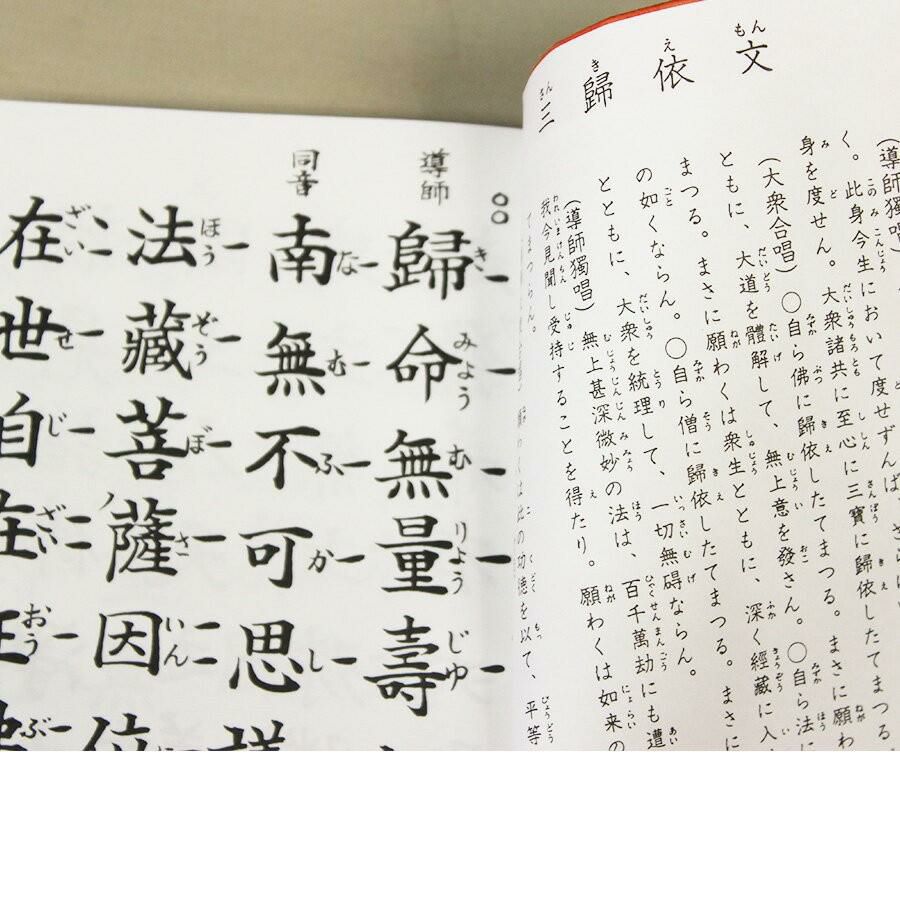 三歸依文
(導師獨唱)
く。此身今生において度せずんば、さらに
身を度せん。大衆諸共に至心に三寶に歸依したてまつる
(大衆合唱) ○自ら佛に歸依したてまつる。まさに願わ
ともに、大道を體解して、無上意を發さん。○自ら法に
まつる。まさに願わくは衆生とともに、深く經藏に入
の如くならん。○自ら僧に歸依したてまつる。まさに
とともに、大衆を統理して、一切無碍ならん。
(導師獨唱) 無上甚深微妙の法は、百千萬劫にも遭
我今見聞し受持することを得たり。願わくは如来の
てまつらん。
を以て、平等
導師 歸命無量壽
同音 南無不可思議
法藏菩薩因位
在世自在王